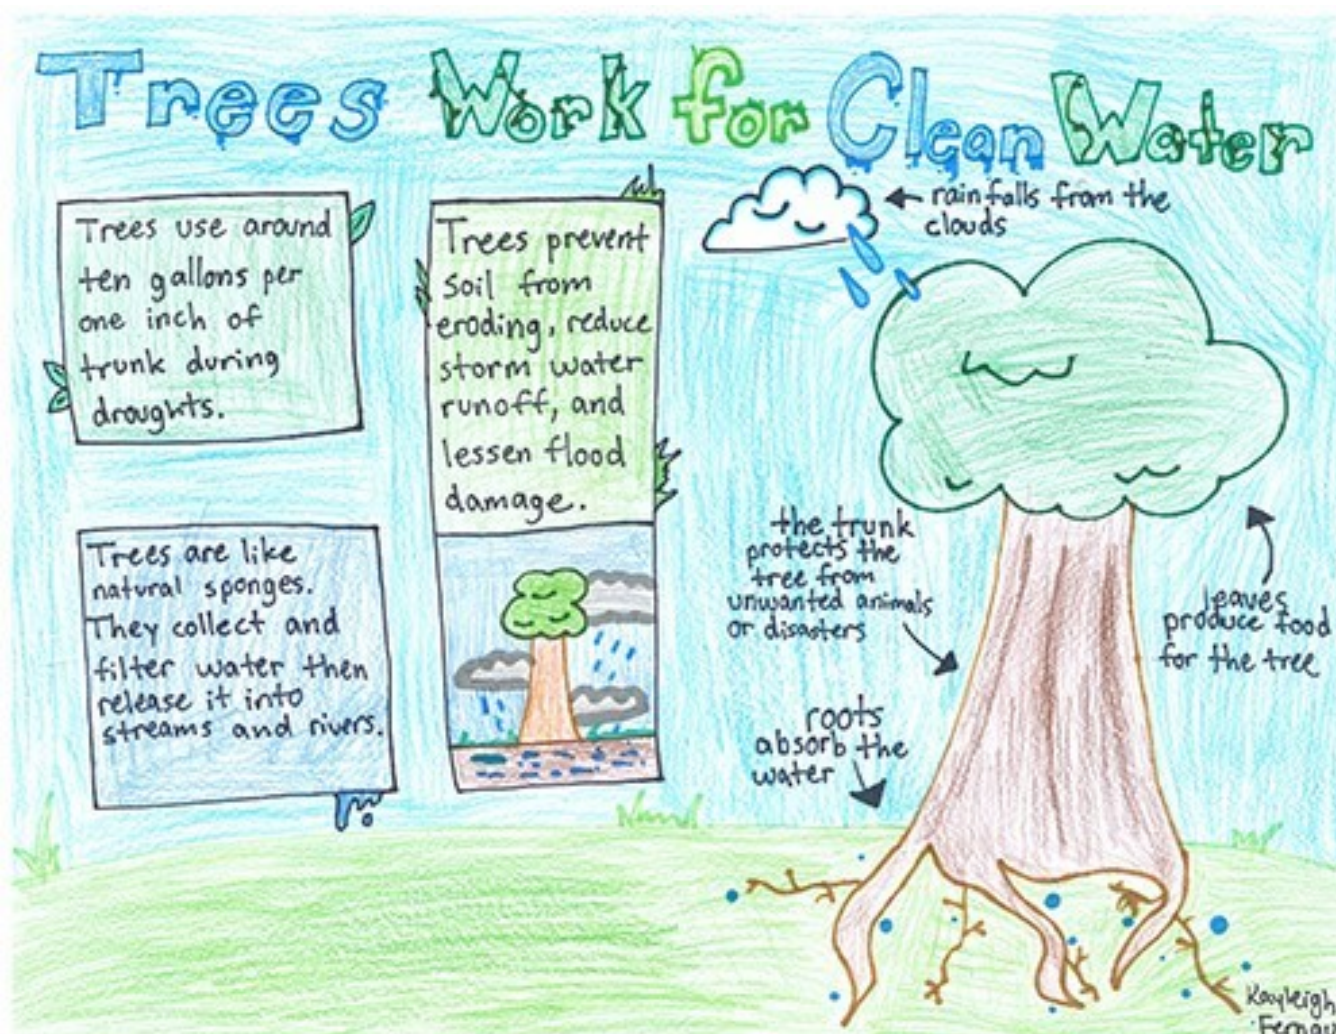 Trees Work for Clean Water
Trees use around
ten gallons per
one inch of
trunk during
droughts.
Trees are like
natural sponges.
They collect and
filter water then
release it into
streams and rivers.
Trees prevent
soil from
eroding, reduce
storm water
runoff, and
lessen flood
damage.
rain falls from the
clouds
the trunk
protects the
tree from
unwanted animals
or disasters
leaves
produce food
for the tree
roots
absorb the
water
Kayleigh